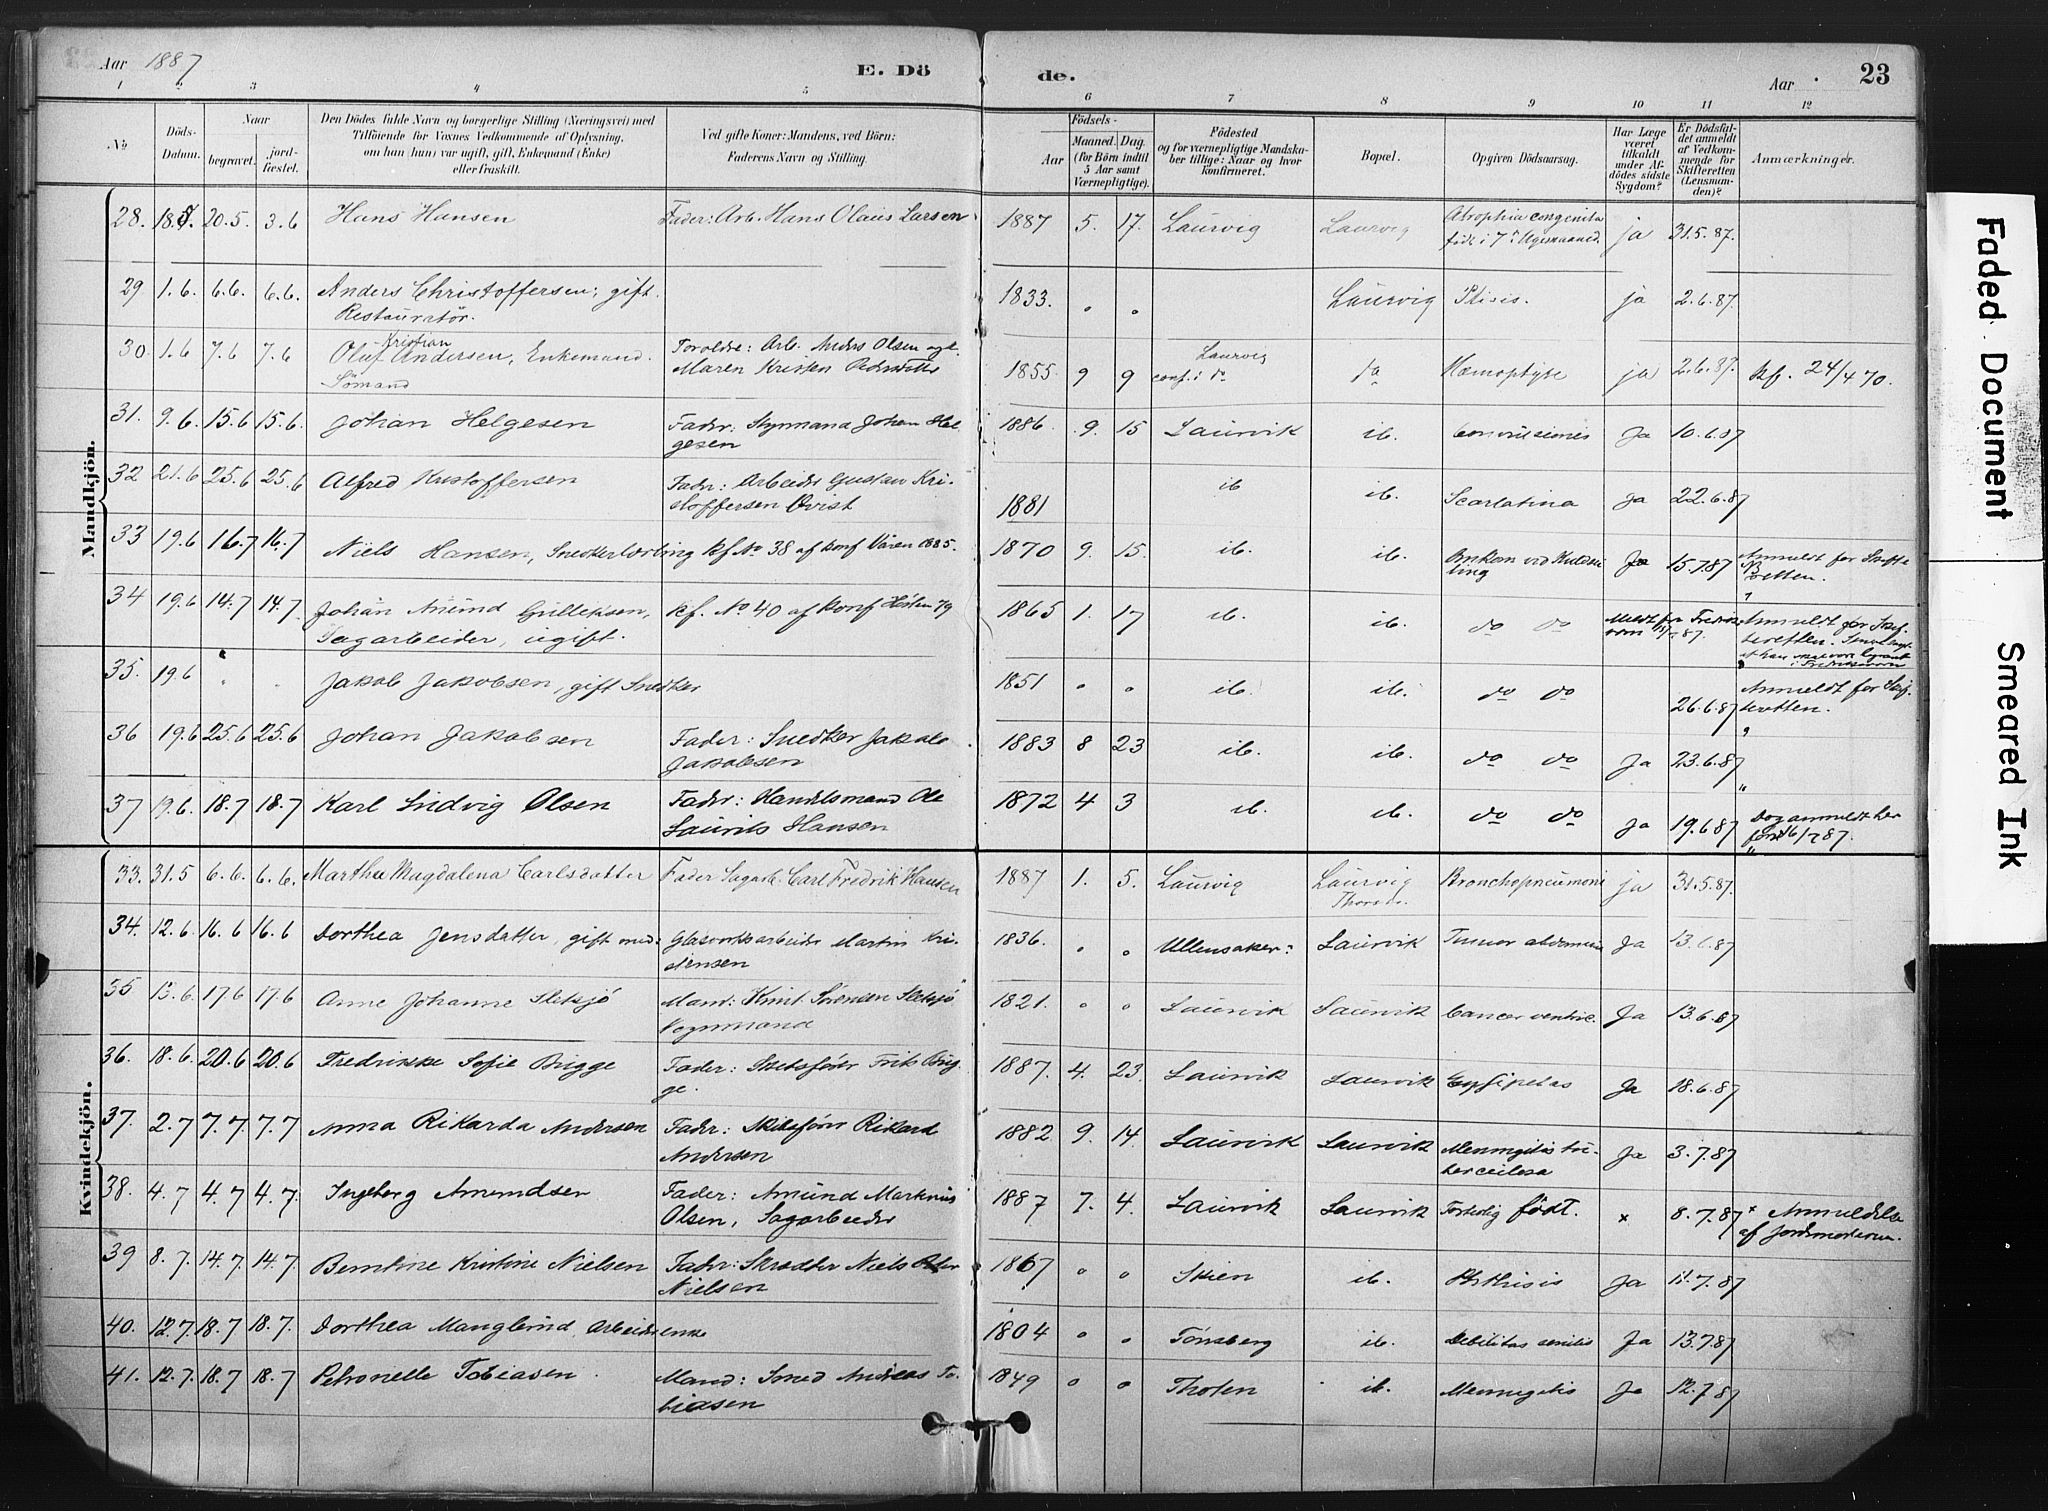 Aar 1887
E. Dö
de.
Aar
23
1 2 3 4 5 6 7 8 9 10 11 12
No
Döds-
Datum.
Naar
begravet.
jord-
fæstet.
Den Dödes fulde Navn og borgerlige Stilling (Næringsvei) med
Tilföiende for Voxnes Vedkommende af Oplysning,
om han (hun) var ugift, gift, Enkemand (Enke)
eller fraskilt.
Ved gifte Koner: Mandens, ved Börn:
Faderens Navn og Stilling.
Födsels-
Aar
Maaned.
Dag.
(for Börn indtil
5 Aar samt
Værnepligtige).
Födested
og for værnepligtige Mandska-
ber tillige: Naar og hvor
konfirmeret.
Bopæl.
Opgiven Dödsaarsag.
Har Læge
været
tilkaldt
under Af-
dödes sidste
Sygdom?
Er Dödsfal-
det anmeldt
af Vedkom-
mende for
Skifteretten
(Lensman-
den)?
Anmærkninger.
Mandkjön.
28. 18.5 20.5. 3.6 Hans Hansen Fader: Arb. Hans Olaus Larsen 1887 5. 17. Laurvig Laurvig Atrophia congenita ja 31.5.87.
födt i 7de
29 1.6. 6.6. 6.6. Anders Christoffersen; gift. 1833. " " Laurvig Ptisis. ja 2.6.87.
Restauratör.
30. 1.6 7.6 7.6 Oluf Kristian Andersen, Enkemand. Foreldre: Arb. Anders Olsen og 1855. 9 9 Laurvig do Hæmoptyse ja 2.6.87. kf. 24/4 70.
Sömand Maren Kristen conf. i do
31. 9.6. 15.6 15.6. Johan Helgesen Fader: Styrmand Johan Hel- 1886. 9. 15 Laurvik ib. Convulsiones Ja 10.6.87
gesen
32 21.6 25.6 25.6 Alfred Kristoffersen Fader: Arbeider Gustav Kri- 1881 ib ib. Scarlatina Ja 22.6.87
stoffersen Qvist
33 19.6 16.7 16.7 Niels Hansen, Snedkerlærling kf No 38 af konf Våren 1885. 1870 9. 15. ib. ib. Omkom ved Kuldsei- Ja 15.7.87 Anmeldt for Skifte
ling retten.
34 19.6 14.7 14.7. Johan Amund Gulleksen, kf. No 40 af konf Høsten 79 1865 1. 17 ib. ib. do do Meldt fra Fredriks- Anmeldt for Skif-
Sagarbeider, ugift. teretten.
i Fredriksværn
35. 19.6 " " Jakob Jakobsen, gift Snedker 1851 " " ib. ib. do do 26.6.87 Anmeldt for Skif-
teretten.
36 19.6 25.6 25.6 Johan Jakobsen Fader: Snedker Jakob 1883 8 23 ib. ib. do do Ja 23.6.87 "
Jakobsen
37 19.6. 18.7 18.7 Karl Ludvig Olsen Fader: Handelsmand Ole 1872 4 3 ib. ib. do do Ja 19.6.87 Dog anmeldt her
Laurits Hansen först 16/7 87.
Kvindekjön.
33. 31.5 6.6. 6.6. Martha Magdalena Carlsdatter Fader Sagarb. Carl Fredrik Hansen 1887 1. 5. Laurvig Laurvig Bronchopneumoni ja 31.5.87.
34. 12.6 16.6 16.6 Dorthea Jensdatter, gift med: Glasverksarbeider Martin Kri- 1836. " " Ullensaker: Laurvik Tumor abdominis Ja 13.6.87
stensen
35 13.6. 17.6 17.6 Anne Johanne Sletsjö Mand: Knut Sörensen Sletsjö 1821. " " Laurvik Laurvik Cancer ventric. Ja 13.6.87
Vognmand
36. 18.6. 20.6 20.6 Fredrikke Sofie Brigge Fader: Skibsfører Frits Brig- 1887. 4. 23. Laurvik Laurvik Erysipelas Ja 18.6.87
ge.
37. 2.7 7.7 7.7 Anna Rikarda Andersen Fader: Skibsfører Rikard 1882 9. 14 Laurvik Laurvik Meningitis tu- Ja 3.7.87
Andersen berculosa
38. 4.7 4.7 4.7. Ingeborg Amundsen Fader: Amund Markus 1887 7. 4. Laurvik Laurvik Fortidlig født. x 8.7.87 x Anmeldelse
Olsen, Sagarbeider af Jordmoderen.
39 8.7. 14.7. 14.7. Berntine Kristine Nielsen Fader: Skrædder Niels Peter 1867 " " Skien ib. Phthisis Ja 11.7.87
Nielsen
40. 12.7. 18.7 18.7. Dorthea Manglerud, Arbeiderenke 1804 " " Tönsberg ib. Debilitas senilis Ja 13.7.87
41. 12.7. 18.7 18.7 Petronelle Tobiasen. Mand: Smed Andreas To- 1849 " " Thoten ib. Meningitis Ja 12.7.87
biasen
Faded Document
Smeared Ink